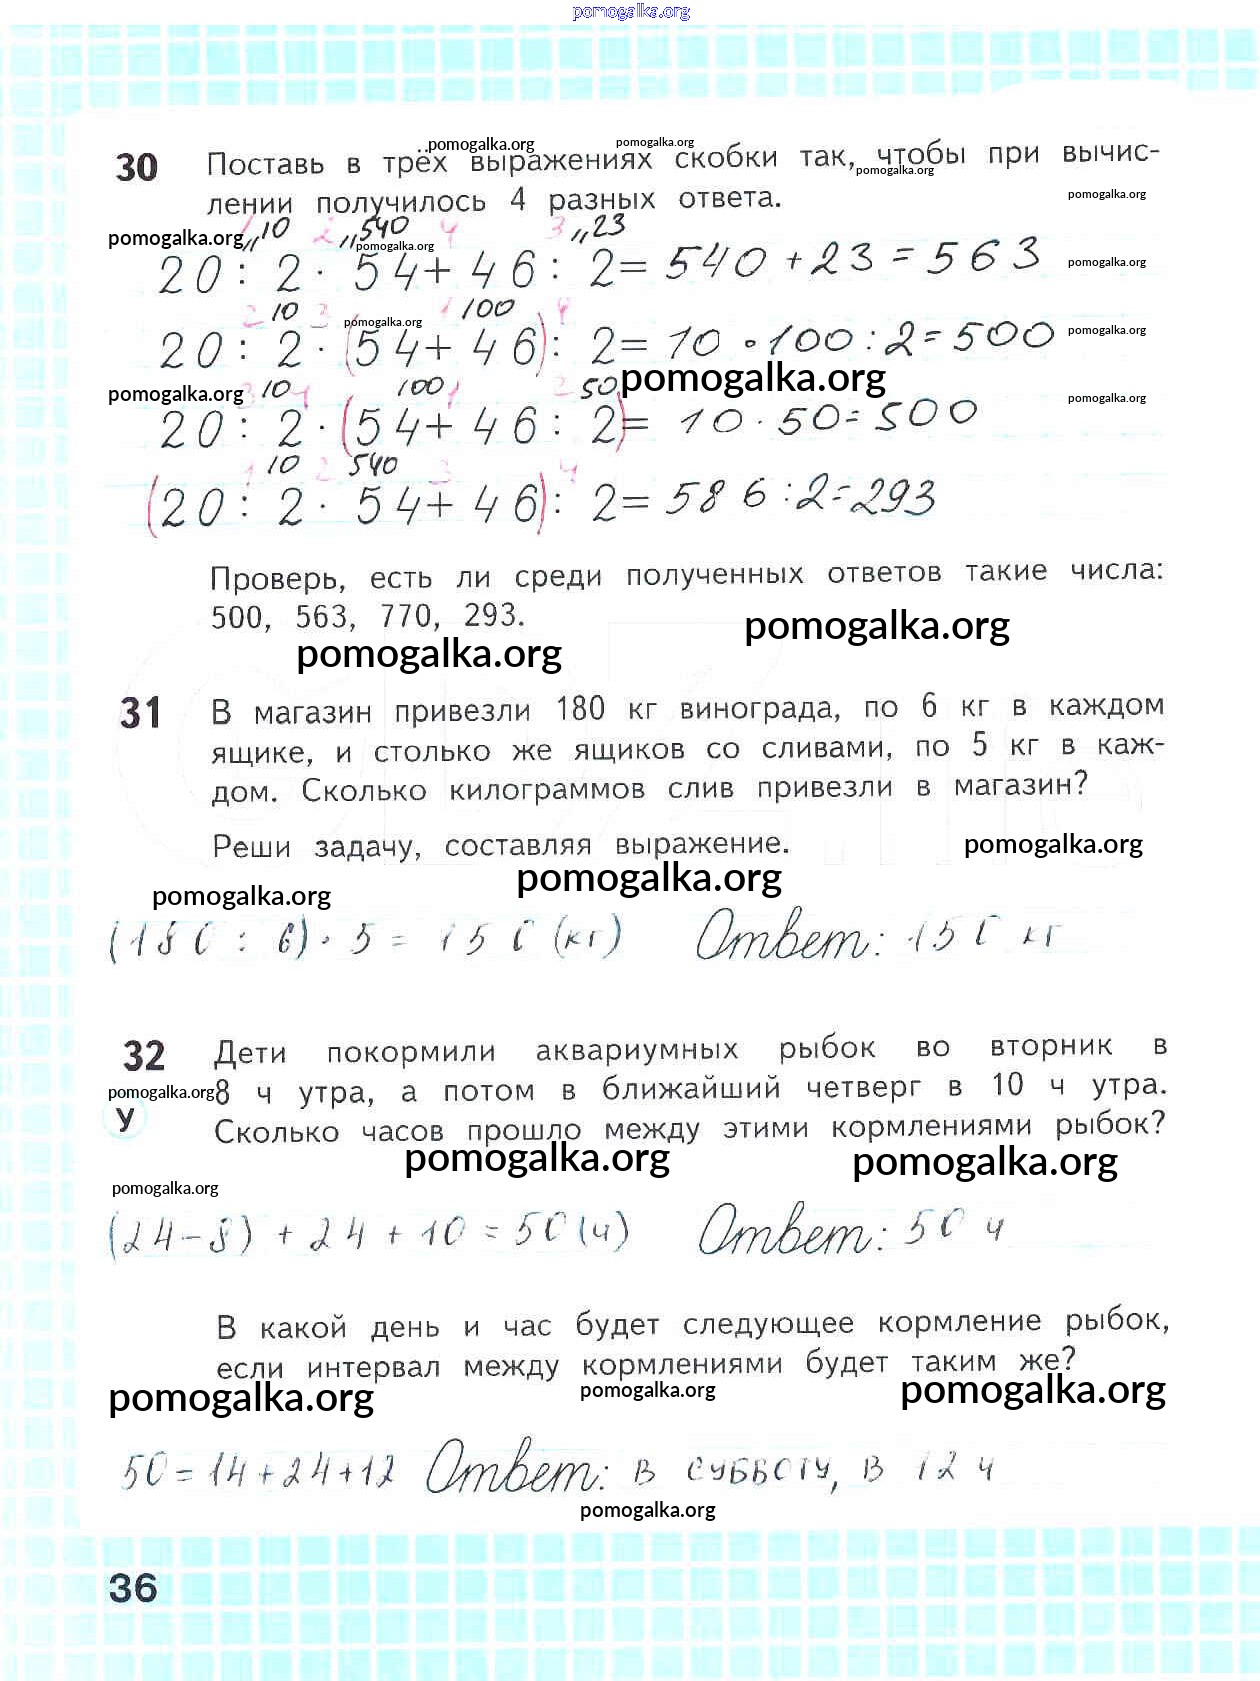 pomogalka.org
30 Поставь в трёх выражениях скобки так, чтобы при вычис-
pomogalka.org pomogalka.org pomogalka.org
лении получилось 4 разных ответа.
pomogalka.org
1 10 2 540 4 3 23
pomogalka.org pomogalka.org
20 : 2 · 54 + 46 : 2 = 540 + 23 = 563
pomogalka.org
2 10 3 1 100 4
pomogalka.org pomogalka.org
20 : 2 · (54 + 46) : 2 = 10 · 100 : 2 = 500
pomogalka.org
3 10 4 100 1 2 50
pomogalka.org pomogalka.org
20 : 2 · (54 + 46 : 2) = 10 · 50 = 500
1 10 2 540 3 4
(20 : 2 · 54 + 46) : 2 = 586 : 2 = 293
Проверь, есть ли среди полученных ответов такие числа:
500, 563, 770, 293.
pomogalka.org
pomogalka.org
31 В магазин привезли 180 кг винограда, по 6 кг в каждом
ящике, и столько же ящиков со сливами, по 5 кг в каж-
дом. Сколько килограммов слив привезли в магазин?
Реши задачу, составляя выражение.
pomogalka.org
pomogalka.org
pomogalka.org
(180 : 6) · 5 = 150 (кг) Ответ: 150 кг
32 Дети покормили аквариумных рыбок во вторник в
pomogalka.org
8 ч утра, а потом в ближайший четверг в 10 ч утра.
У
Сколько часов прошло между этими кормлениями рыбок?
pomogalka.org pomogalka.org
pomogalka.org
(24 - 8) + 24 + 10 = 50 (ч) Ответ: 50 ч
В какой день и час будет следующее кормление рыбок,
если интервал между кормлениями будет таким же?
pomogalka.org pomogalka.org pomogalka.org
50 = 14 + 24 + 12 Ответ: в субботу, в 12 ч
pomogalka.org
36